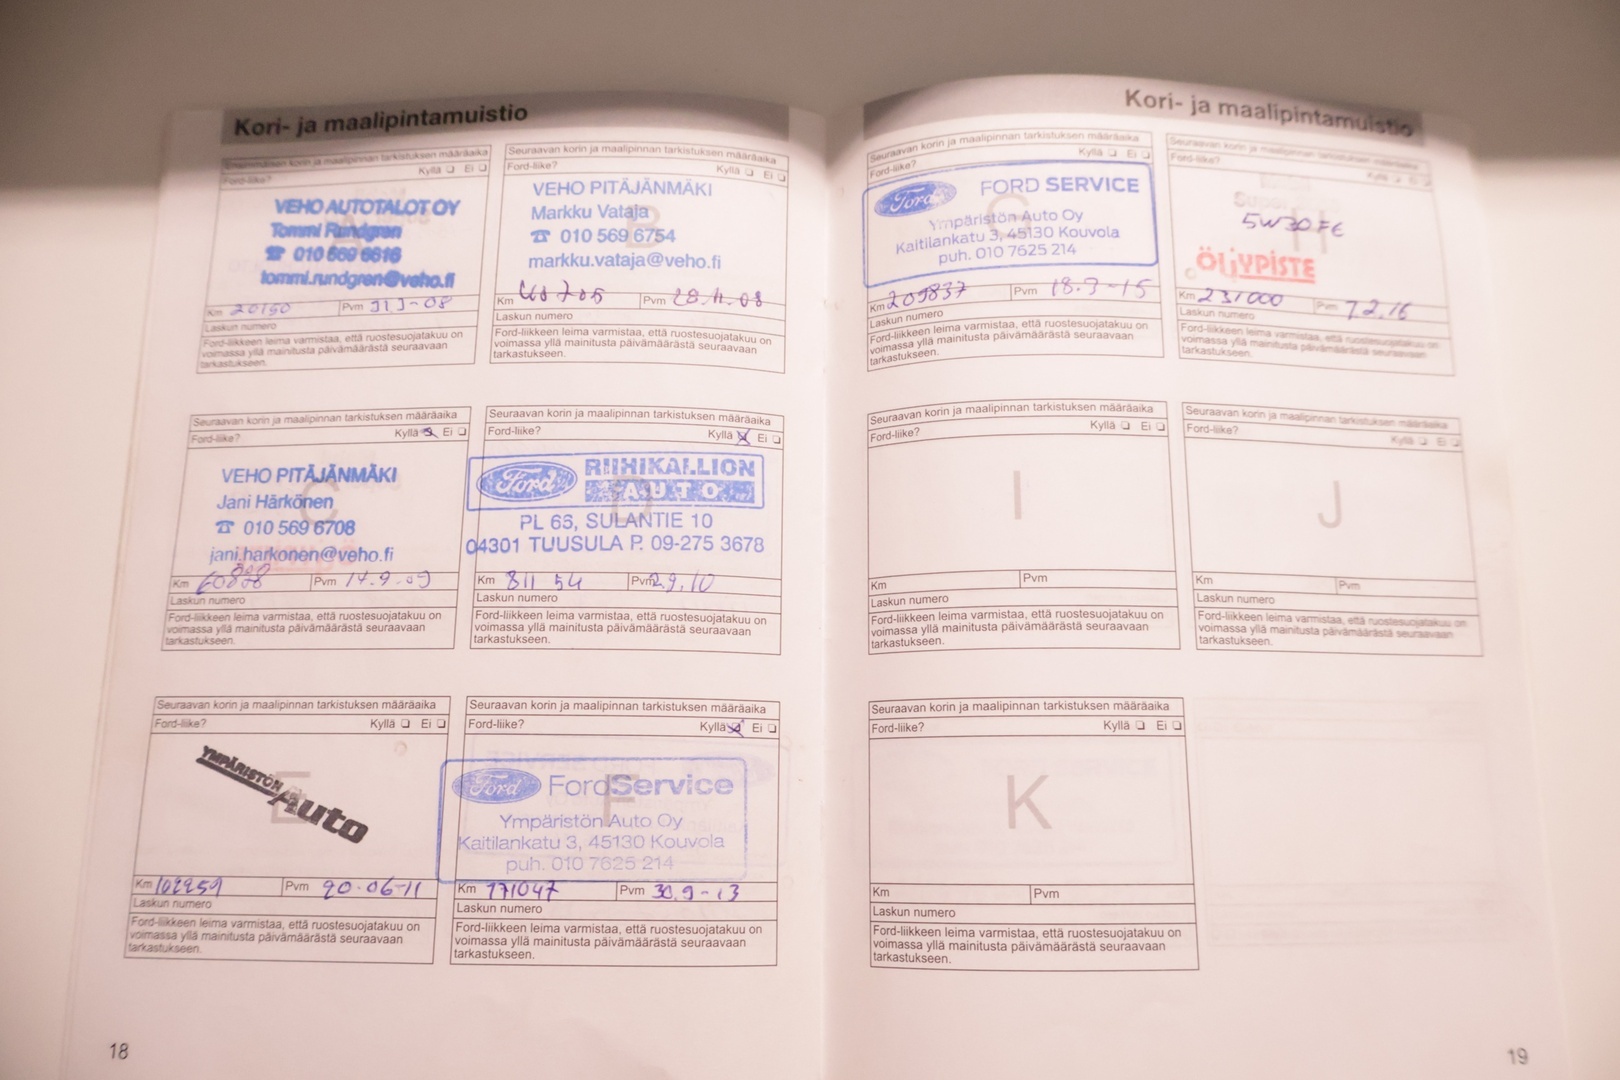 Kori- ja maalipintamuistio
Ensimmäisen korin ja maalipinnan tarkistuksen määräaika
Ford-liike? Kyllä ❏ Ei ❏
A
VEHO AUTOTALOT OY
Tommi Rundgren
☎ 010 569 6616
tommi.rundgren@veho.fi
Km 20150 Pvm
Laskun numero
Ford-liikkeen leima varmistaa, että ruostesuojatakuu on
voimassa yllä mainitusta päivämäärästä seuraavaan
tarkastukseen.
Seuraavan korin ja maalipinnan tarkistuksen määräaika
Ford-liike? Kyllä ❏ Ei ❏
B
VEHO PITÄJÄNMÄKI
Markku Vataja
☎ 010 569 6754
markku.vataja@veho.fi
Km Pvm 28.11.08
Laskun numero
Ford-liikkeen leima varmistaa, että ruostesuojatakuu on
voimassa yllä mainitusta päivämäärästä seuraavaan
tarkastukseen.
Seuraavan korin ja maalipinnan tarkistuksen määräaika
Ford-liike? Kyllä ☒ Ei ❏
C
VEHO PITÄJÄNMÄKI
Jani Härkönen
☎ 010 569 6708
jani.harkonen@veho.fi
Km Pvm 14.9.09
Laskun numero
Ford-liikkeen leima varmistaa, että ruostesuojatakuu on
voimassa yllä mainitusta päivämäärästä seuraavaan
tarkastukseen.
Seuraavan korin ja maalipinnan tarkistuksen määräaika
Ford-liike? Kyllä ☒ Ei ❏
D
Ford RIIHIKALLION
AUTO
PL 66, SULANTIE 10
04301 TUUSULA P. 09-275 3678
Km 81154 Pvm 2.9.10
Laskun numero
Ford-liikkeen leima varmistaa, että ruostesuojatakuu on
voimassa yllä mainitusta päivämäärästä seuraavaan
tarkastukseen.
Seuraavan korin ja maalipinnan tarkistuksen määräaika
Ford-liike? Kyllä ❏ Ei ❏
E
YMPÄRISTÖN
Auto
Km 102259 Pvm 20.06-11
Laskun numero
Ford-liikkeen leima varmistaa, että ruostesuojatakuu on
voimassa yllä mainitusta päivämäärästä seuraavaan
tarkastukseen.
Seuraavan korin ja maalipinnan tarkistuksen määräaika
Ford-liike? Kyllä ☒ Ei ❏
F
Ford FordService
Ympäristön Auto Oy
Kaitilankatu 3, 45130 Kouvola
puh. 010 7625 214
Km 171047 Pvm 30.9-13
Laskun numero
Ford-liikkeen leima varmistaa, että ruostesuojatakuu on
voimassa yllä mainitusta päivämäärästä seuraavaan
tarkastukseen.
18
Kori- ja maalipintamuistio
Seuraavan korin ja maalipinnan tarkistuksen määräaika
Ford-liike? Kyllä ❏ Ei ❏
G
Ford FORD SERVICE
Ympäristön Auto Oy
Kaitilankatu 3, 45130 Kouvola
puh. 010 7625 214
Km 209837 Pvm 18.3-15
Laskun numero
Ford-liikkeen leima varmistaa, että ruostesuojatakuu on
voimassa yllä mainitusta päivämäärästä seuraavaan
tarkastukseen.
Seuraavan korin ja maalipinnan tarkistuksen määräaika
Ford-liike? Kyllä ❏ Ei ❏
H
5W30 FE
ÖLJYPISTE
Km 231000 Pvm 7.2.16
Laskun numero
Ford-liikkeen leima varmistaa, että ruostesuojatakuu on
voimassa yllä mainitusta päivämäärästä seuraavaan
tarkastukseen.
Seuraavan korin ja maalipinnan tarkistuksen määräaika
Ford-liike? Kyllä ❏ Ei ❏
I
Km Pvm
Laskun numero
Ford-liikkeen leima varmistaa, että ruostesuojatakuu on
voimassa yllä mainitusta päivämäärästä seuraavaan
tarkastukseen.
Seuraavan korin ja maalipinnan tarkistuksen määräaika
Ford-liike? Kyllä ❏ Ei ❏
J
Km Pvm
Laskun numero
Ford-liikkeen leima varmistaa, että ruostesuojatakuu on
voimassa yllä mainitusta päivämäärästä seuraavaan
tarkastukseen.
Seuraavan korin ja maalipinnan tarkistuksen määräaika
Ford-liike? Kyllä ❏ Ei ❏
K
Km Pvm
Laskun numero
Ford-liikkeen leima varmistaa, että ruostesuojatakuu on
voimassa yllä mainitusta päivämäärästä seuraavaan
tarkastukseen.
19